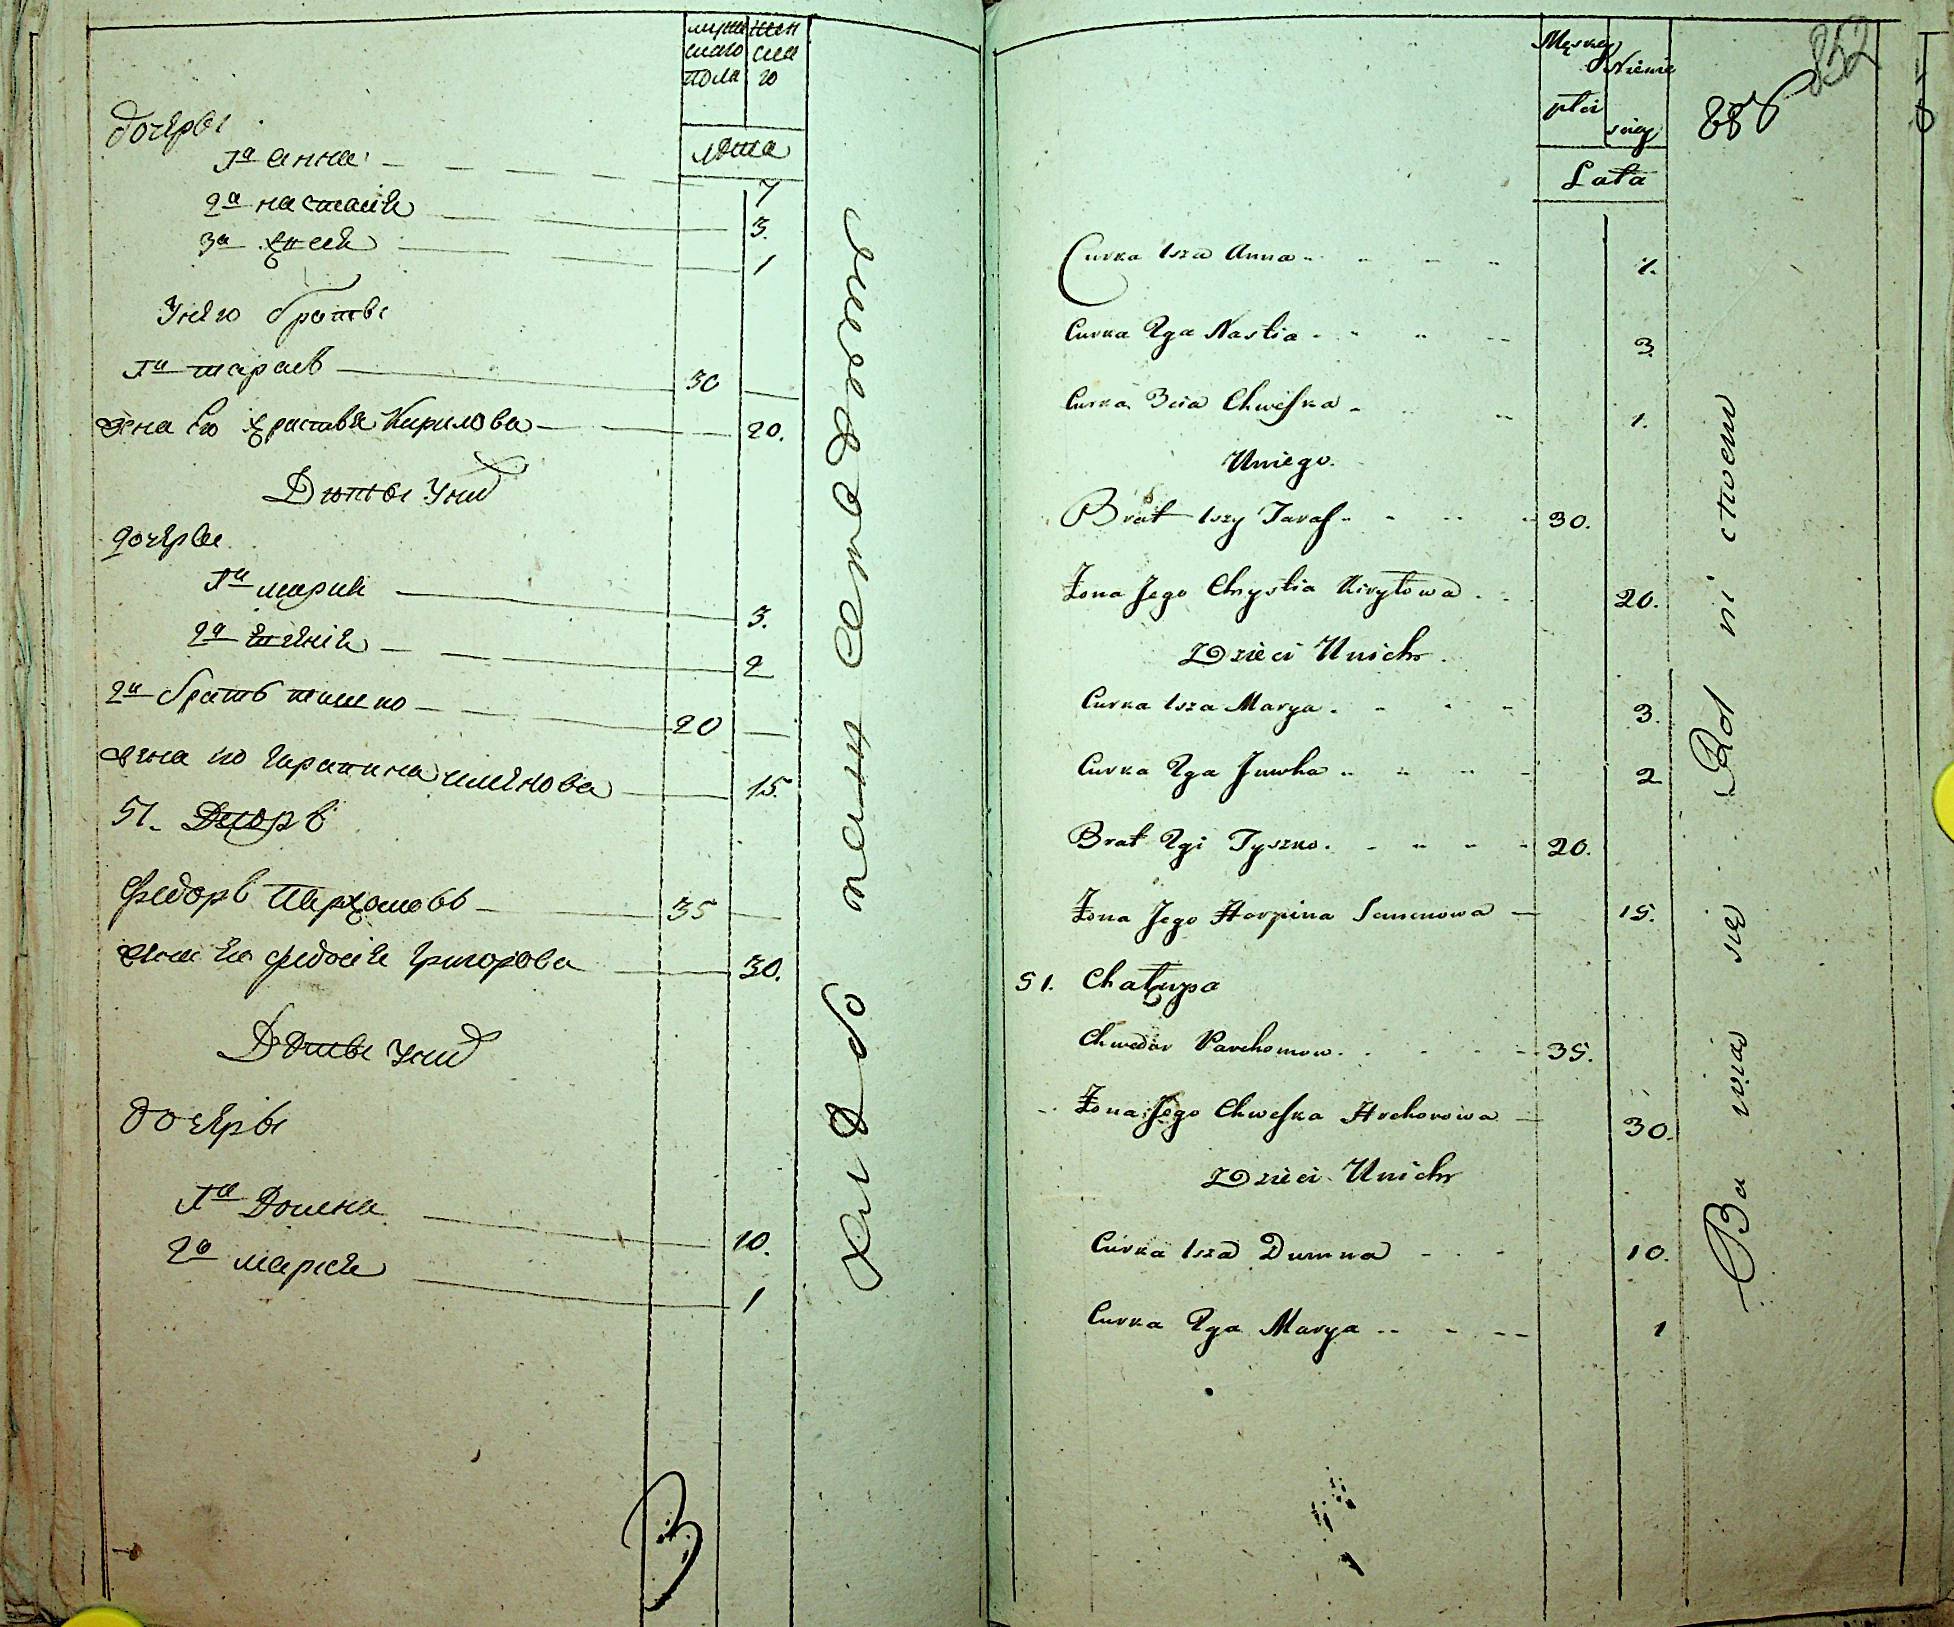 мужескаго пола
женскаго
лѣта
дочеры
1а анна 7
2а настасія 3.
3а хвеся 1
У него братьи
1й тарасъ 30
жена его христья Кирилова 20.
Дѣти у них
дочеры
1а марія 3.
2а 2
2й братъ тишко 20
жена его гарапина семенова 15.
51. Дворъ
Федоръ Пархомовъ 35
жена его федосія григорова 30.
Дѣти у них
дочеры
1а Домна 10.
2а марія 1
хлебо пашеством
В
Męskey płci
Niewieściey
Lata
852
886
Curka 1sza Anna 7.
Curka 2ga Nastia 3.
Curka 3cia Chweśka 1.
U niego.
Brat 1szy Taras 30.
Żona Jego Chrystia Kiryłowa 20.
Dzieci U nich.
Curka 1sza Marya 3.
Curka 2ga Juwha 2
Brat 2gi Tyszko. 20.
Żona Jego Harpina Semenowa 15.
51. Chałupa
Chwedor Parchomow 35.
Żona Jego Chweśka Hrehorowa 30.
Dzieci U nich
Curka 1sza Dumna 10.
Curka 2ga Marya 1
Ba wią się Rol ni ctwem